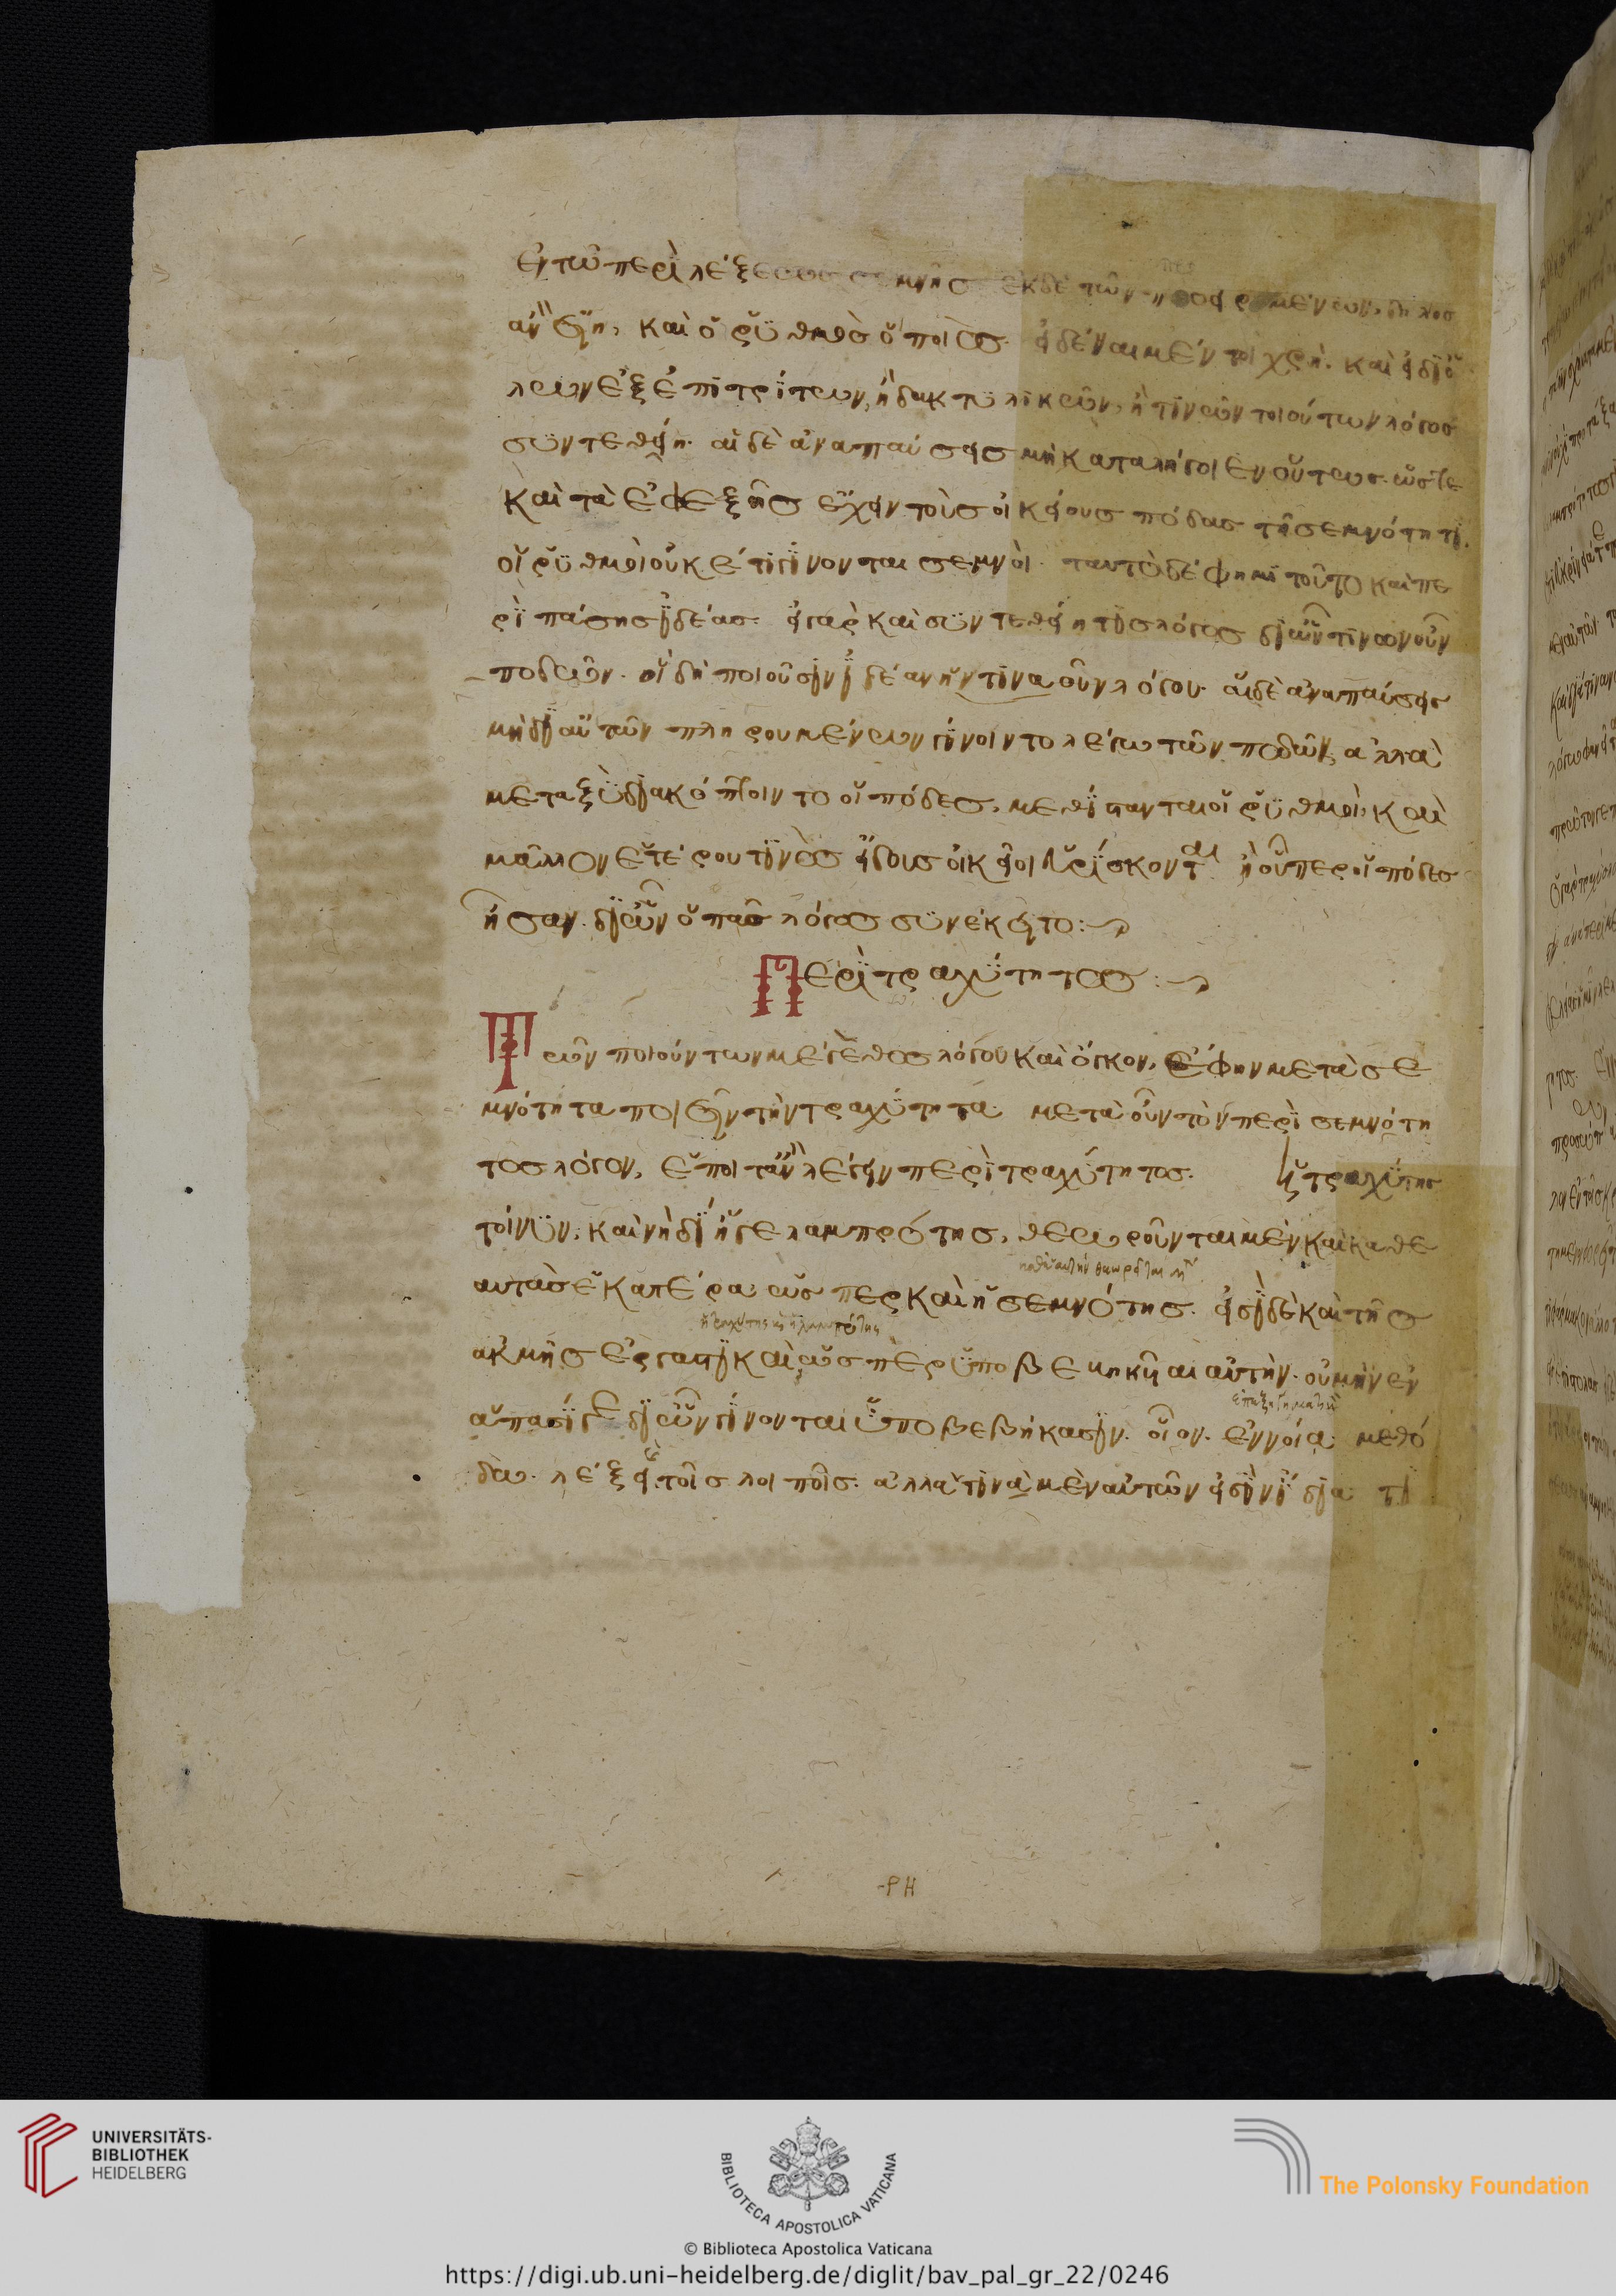 ἐν τῶ περὶ λέξεως σεμνῆς ἐκ δὲ τῶν προειρημένων, δῆλος
ἂν εἴη, καὶ ὁ ῥυθμὸς ὁποῖος. εἰδέναι μέντοι χρὴ. καὶ εἰ δι' ὅ
λων ἐξ ἐπιτρίτων, ἢ δακτυλικῶν, ἤ τινων τοιούτων λόγος
συντεθείη. αἱ δὲ ἀναπαύσεις μὴ καταλήγοιεν οὕτως. ὥστε
καὶ τὰ ἐφεξῆς ἔχειν τοὺς οἰκείους πόδας τῆ σεμνότητι.
οἱ ῥυθμοὶ οὐκέτι γίνονται σεμνοὶ. ταυτὸ δέ φημι τοῦτο καὶ πε
ρὶ πάσης ἰδέας. εἰ γὰρ καὶ συντεθείη τις λόγος δι' ὧν τινωνοῦν
ποδῶν. οἳ δὴ ποιοῦσιν ἰδέαν ἥντιναοῦν λόγου. αἱ δὲ ἀναπαύσεις
μὴ δι' αὐτῶν πληρουμένων γίνοιντο λέγω τῶν ποδῶν, ἀλλὰ
μεταξὺ διακόπτοιντο οἱ πόδες, μεθίστανται οἱ ῥυθμοὶ, καὶ
μᾶλλον ἑτέρου τινὸς εἴδους οἰκεῖοι εὑρίσκονται ἢ οὗπερ οἱ πόδες
ἦσαν. δι' ὧν ὁ πᾶς λόγος συνέκειτο:
Περὶ τραχύτητος:
Τῶν ποιούντων μέγεθος λόγου καὶ ὄγκον, ἔφην μετὰ σε
μνότητα ποιεῖν τὴν τραχύτητα. μετὰ οὖν τὸν περὶ σεμνότη
τος λόγον, ἕποιτ' ἂν λέγειν περὶ τραχύτητος. ἡ τραχύτης
τοίνυν, καὶ νὴ δί' ἥγε λαμπρότης, θεωροῦνται μὲν καὶ καθ' ἑ
αυτὰς ἑκατέρα ὥσπερ καὶ ἡ σεμνότης. εἰσὶ δὲ καὶ τῆς
ἀκμῆς ἐργαστικαὶ ὥσπερ ὑποβεβηκυῖαι αὐτὴν. οὐ μὴν ἐν
ἅπασί γε δι' ὧν γίνονται ὑποβεβήκασιν. οἷον. ἐννοία μεθό
δω. λέξει. τοῖς λοιποῖς. ἀλλά τινα μὲν αὐτῶν εἰσὶν ἴδια τι
ΡΗ
UNIVERSITÄTS-
BIBLIOTHEK
HEIDELBERG
BIBLIOTECA APOSTOLICA VATICANA
The Polonsky Foundation
© Biblioteca Apostolica Vaticana
https://digi.ub.uni-heidelberg.de/diglit/bav_pal_gr_22/0246